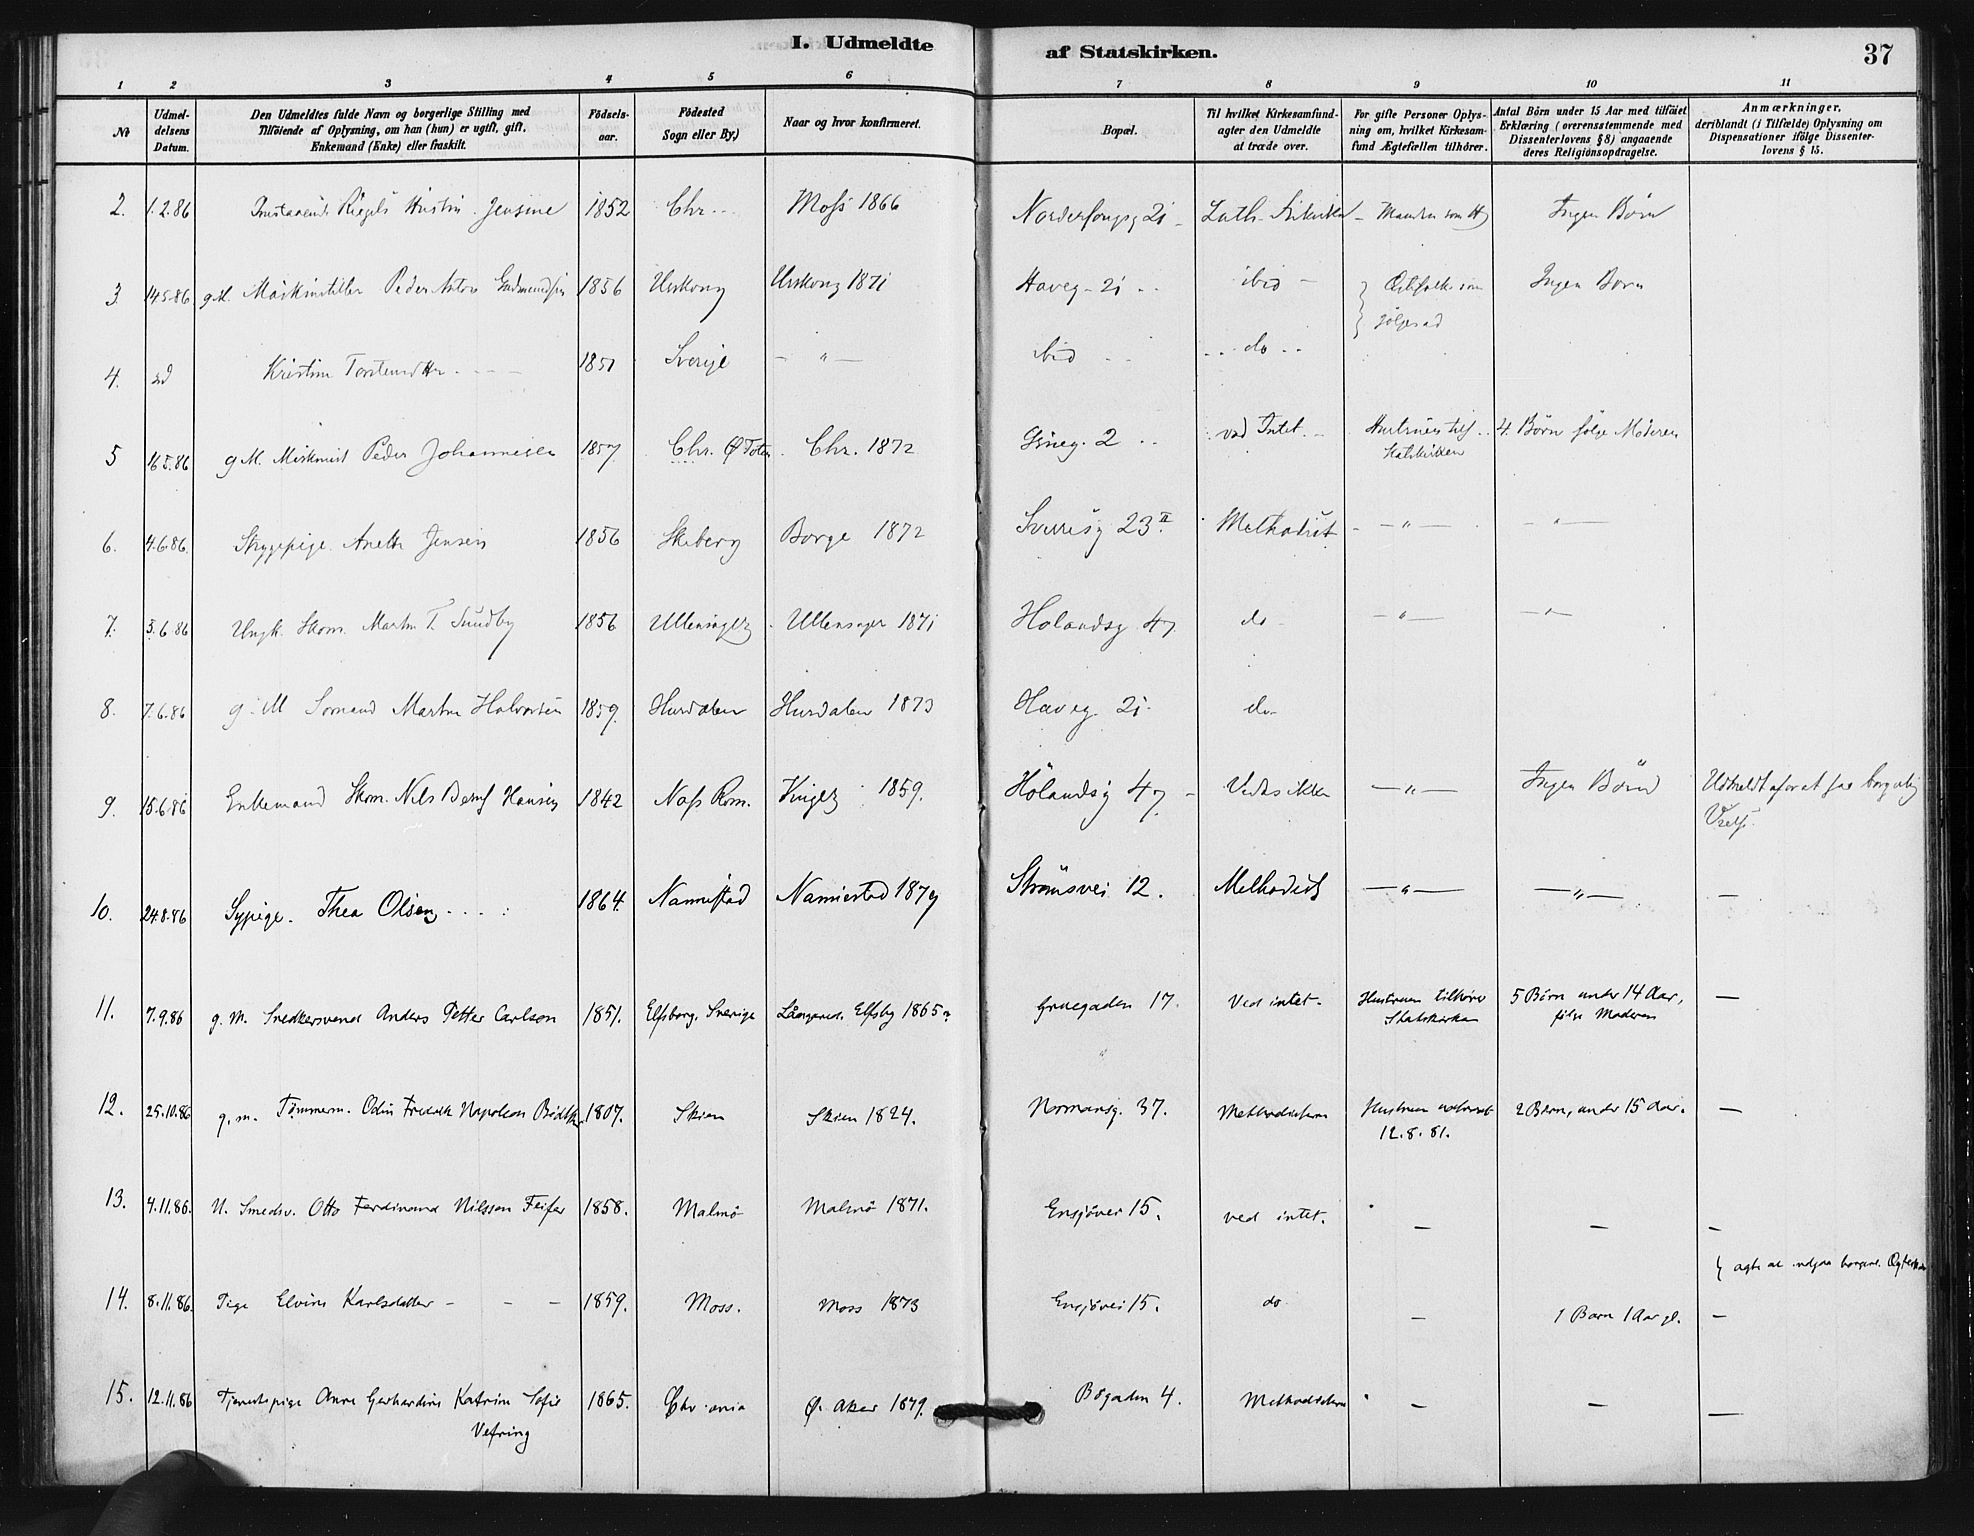 I. Udmeldte af Statskirken. 37
1 2 3 4 5 6 7 8 9 10 11
№ | Udmeldelsens Datum. | Den Udmeldtes fulde Navn og borgerlige Stilling med Tilføiende af Oplysning, om han (hun) er ugift, gift, Enkemand (Enke) eller fraskilt. | Födselsaar. | Födested Sogn eller By,) | Naar og hvor konfirmeret. | Bopæl. | Til hvilket Kirkesamfund agter den Udmeldte at træde over. | For gifte Personer Oplysning om, hvilket Kirkesamfund Ægtefællen tilhører. | Antal Börn under 15 Aar med tilföiet Erklæring (overensstemmende med Dissenterlovens § 8) angaaende deres Religiönsopdragelse. | Anmærkninger, deriblandt (i Tilfælde) Oplysning om Dispensationer ifölge Dissenterlovens § 15.
2. | 1.2.86 | Hustru Jensine | 1852 | Chr. | Moss 1866 | 21 | Luth. Frikirken | Manden som | Ingen Børn
3 | 14.5.86 | g.M. Peder Anton Gudmundsen | 1856 | Urskoug | Urskoug 1871 | Haveg. 21 | ibid | | Ingen Børn
4. | Kristine | 1851 | Sverige | — " — | ibid | do
5 | 16.5.86 | g M. Peder Johannesen | 1857 | Chr. Ø Toten | Chr. 1872 | 2 | ved Intet | Statskirken | 4. Børn følge Moderen
6. | 4.6.86. | Strygepige Anette Jensen | 1856 | Skeberg | Borge 1872 | Sverresg 23 II | Methodist | — " — | — " —
7. | 5.6 86 | Ungk. Skom. Martin T. Sundby | 1856 | Ullensager | Ullensager 1871 | Hølandsg 47 | do | — " — | — " —
8. | 7.6.86 | g. M Sømand Martin Halvorsen | 1859. | Hurdalen | Hurdalen 1873 | Haveg. 21 | do
9. | 15.6.86 | Enkemand Skom. Nils Hansen | 1842 | Næss Rom. | 1859. | Hölandsg 47. | Vides ikke | — " — | Ingen Børn | Udmeldt for at faa borgerlig Vielse.
10. | 24.8.86 | Sypige. Thea Olsen | 1864. | Nannestad | Nannestad 1879 | Strømsvei 12. | Methodist | — " — | — " — | —
11. | 7.9.86 | g. M. Snedkersvend Anders Petter Carlson | 1851. | Elfsborg. Sverige | Långared. 1865 | Gruegaden 17. | Ved intet. | Hustruen tilhører Statskirken | 5 Børn under 14 Aar, følge Moderen | —
12. | 25.10.86 | g. m. Tømmerm. Odin Fredrik Napoleon | 1807. | Skien | Skien 1824. | Normansg. 37. | Methodisterne | Hustruen 12. 8. 81. | 2 Børn, under 15 Aar. | —
13. | 4.11.86. | U. Smedsv. Otto Ferdinand Nilsson Feifer | 1858. | Malmö | Malmö 1871. | Ensjøvei 15. | ved intet. | — | — | —
} agte at indgaa borgerl. Ægteskab
14. | 8.11.86. | Pige Elvine Karlsdatter | 1859. | Moss. | Moss 1873 | Ensjøvei 15. | do | — | 1 Barn 1 Aar gl. | —
15. | 12.11.86 | Tjenestepige Anna Gerhardine Katrine Sofie | 1865. | Christiania | Ø. Aker 1879. | Bøgaden 4. | Methodisterne | — | — | —
Vefring